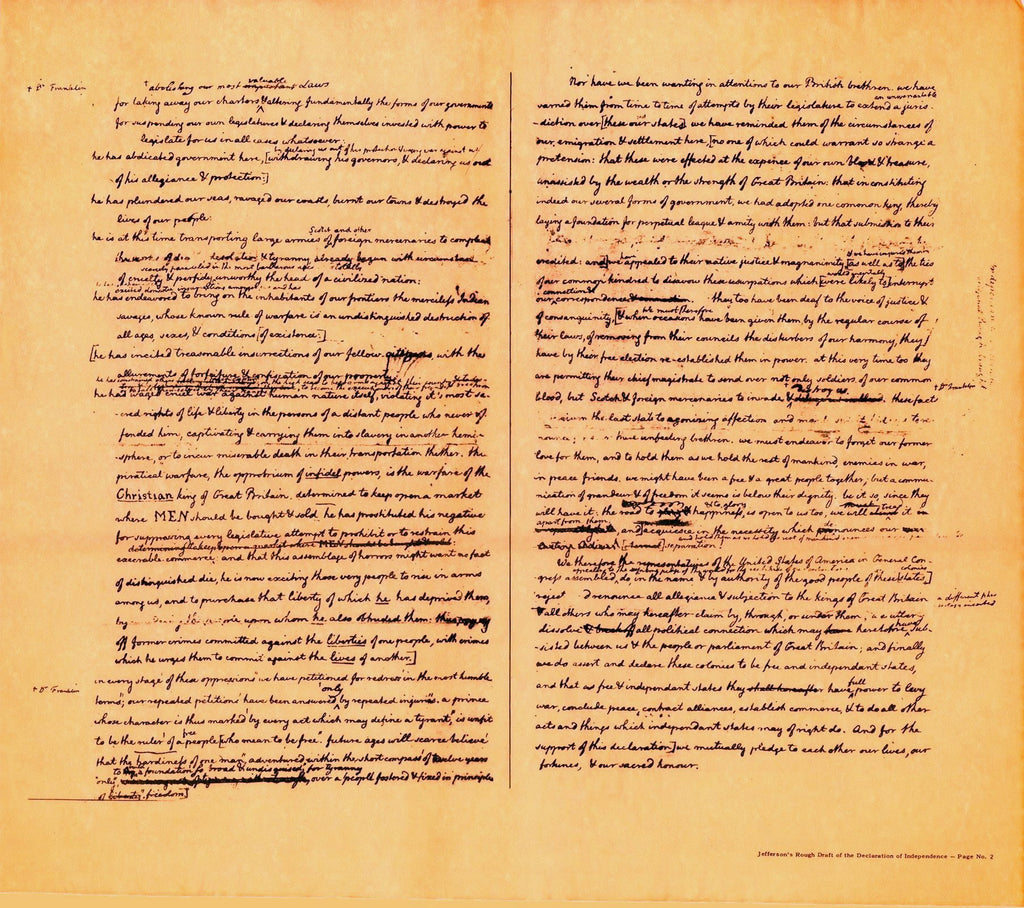 † Dr Franklin
† abolishing our most valuable Laws
for taking away our charters & altering fundamentally the forms of our governments
for suspending our own legislatures & declaring themselves invested with power to
legislate for us in all cases whatsoever:
by declaring us out of his protection & waging war against us
he has abdicated government here, [withdrawing his governors, & declaring us out
of his allegiance & protection:]
he has plundered our seas, ravaged our coasts, burnt our towns & destroyed the
lives of our people:
Scotch and other
he is at this time transporting large armies of foreign mercenaries to compleat
the works of death desolation & tyranny already begun with circumstances
scarcely paralleled in the most barbarous ages totally
of cruelty & perfidy unworthy the head of a civilized nation:
he has endeavored to bring on the inhabitants of our frontiers the merciless Indian
savages, whose known rule of warfare is an undistinguished destruction of
all ages, sexes, & conditions [of existence:]
[he has incited treasonable insurrections of our fellow citizens, with the
allurements of forfeiture & confiscation of our property:
he has waged cruel war against human nature itself, violating it's most sa-
-cred rights of life & liberty in the persons of a distant people who never of-
fended him, captivating & carrying them into slavery in another hemi-
-sphere, or to incur miserable death in their transportation thither. this
piratical warfare, the opprobrium of infidel powers, is the warfare of the
Christian king of Great Britain. determined to keep open a market
where MEN should be bought & sold he has prostituted his negative
for suppressing every legislative attempt to prohibit or to restrain this
determining to keep open a market where MEN should be bought & sold
execrable commerce: and that this assemblage of horrors might want no fact
of distinguished die, he is now exciting those very people to rise in arms
among us, and to purchase that liberty of which he has deprived them,
by upon whom he also obtruded them: thus paying
off former crimes committed against the liberties of one people, with crimes
which he urges them to commit against the lives of another.]
in every stage of these oppressions we have petitioned for redress in the most humble
† Dr Franklin
only
terms; our repeated petitions have been answered by repeated injuries. a prince
whose character is thus marked by every act which may define a tyrant, is unfit
free
to be the ruler of a people [who mean to be free. future ages will scarce believe
that the hardiness of one man, adventured within the short compass of twelve years
to lay a foundation so broad & undisguised for tyranny
only, over a people fostered & fixed in principles
of liberty. freedom]
Nor have we been wanting in attentions to our British brethren. we have
an unwarrantable
warned them from time to time of attempts by their legislature to extend a juris-
-diction over [these our states] we have reminded them of the circumstances of
our emigration & settlement here, [no one of which could warrant so strange a
pretension: that these were effected at the expence of our own blood & treasure,
unassisted by the wealth or the strength of Great Britain: that in constituting
indeed our several forms of government, we had adopted one common king, thereby
laying a foundation for perpetual league & amity with them: but that submission to their
credited: and we appealed to their native justice & magnanimity [as well as to] the ties
of our common kindred to disavow these usurpations which [were likely to] interrupt
connection &
our correspondence & connection. they too have been deaf to the voice of justice &
we must therefore
of consanguinity, [& when occasions have been given them, by the regular course of
their laws, of removing from their councils the disturbers of our harmony, they
have by their free election re-established them in power. at this very time too they
are permitting their chief magistrate to send over not only soldiers of our common
† Dr Franklin
destroy us.
blood, but Scotch & foreign mercenaries to invade & these facts
have given the last stab to agonizing affection and
-nounce unfeeling brethren. we must endeavor to forget our former
love for them, and to hold them as we hold the rest of mankind, enemies in war,
in peace friends. we might have been a free & a great people together; but a commu-
-nication of grandeur & of freedom it seems is below their dignity. be it so, since they
& to glory
will have it: the road to happiness is open to us too; we will it
apart from them
and [acquiesce in the necessity which denounces our
[eternal] separation!
We therefore the representatives of the United States of America in General Con-
colonies
-gress assembled, do in the name & by authority of the good people of these [states]
reject & renounce all allegiance & subjection to the kings of Great Britain
& all others who may hereafter claim by, through, or under them; we utterly
have
dissolve & break off all political connection which may have heretofore sub-
-sisted between us & the people or parliament of Great Britain; and finally
we do assert and declare these colonies to be free and independant states,
full
and that as free & independant states they shall hereafter have power to levy
war, conclude peace, contract alliances, establish commerce, & to do all other
acts and things which independant states may of right do. And for the
support of this declaration] we mutually pledge to each other our lives, our
fortunes, & our sacred honour.
Jefferson's Rough Draft of the Declaration of Independence — Page No. 2